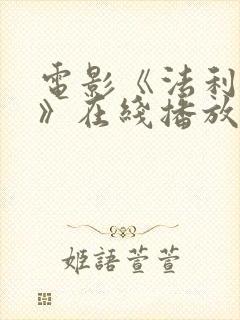 電影《法利
》在綫播放
姬語萱萱